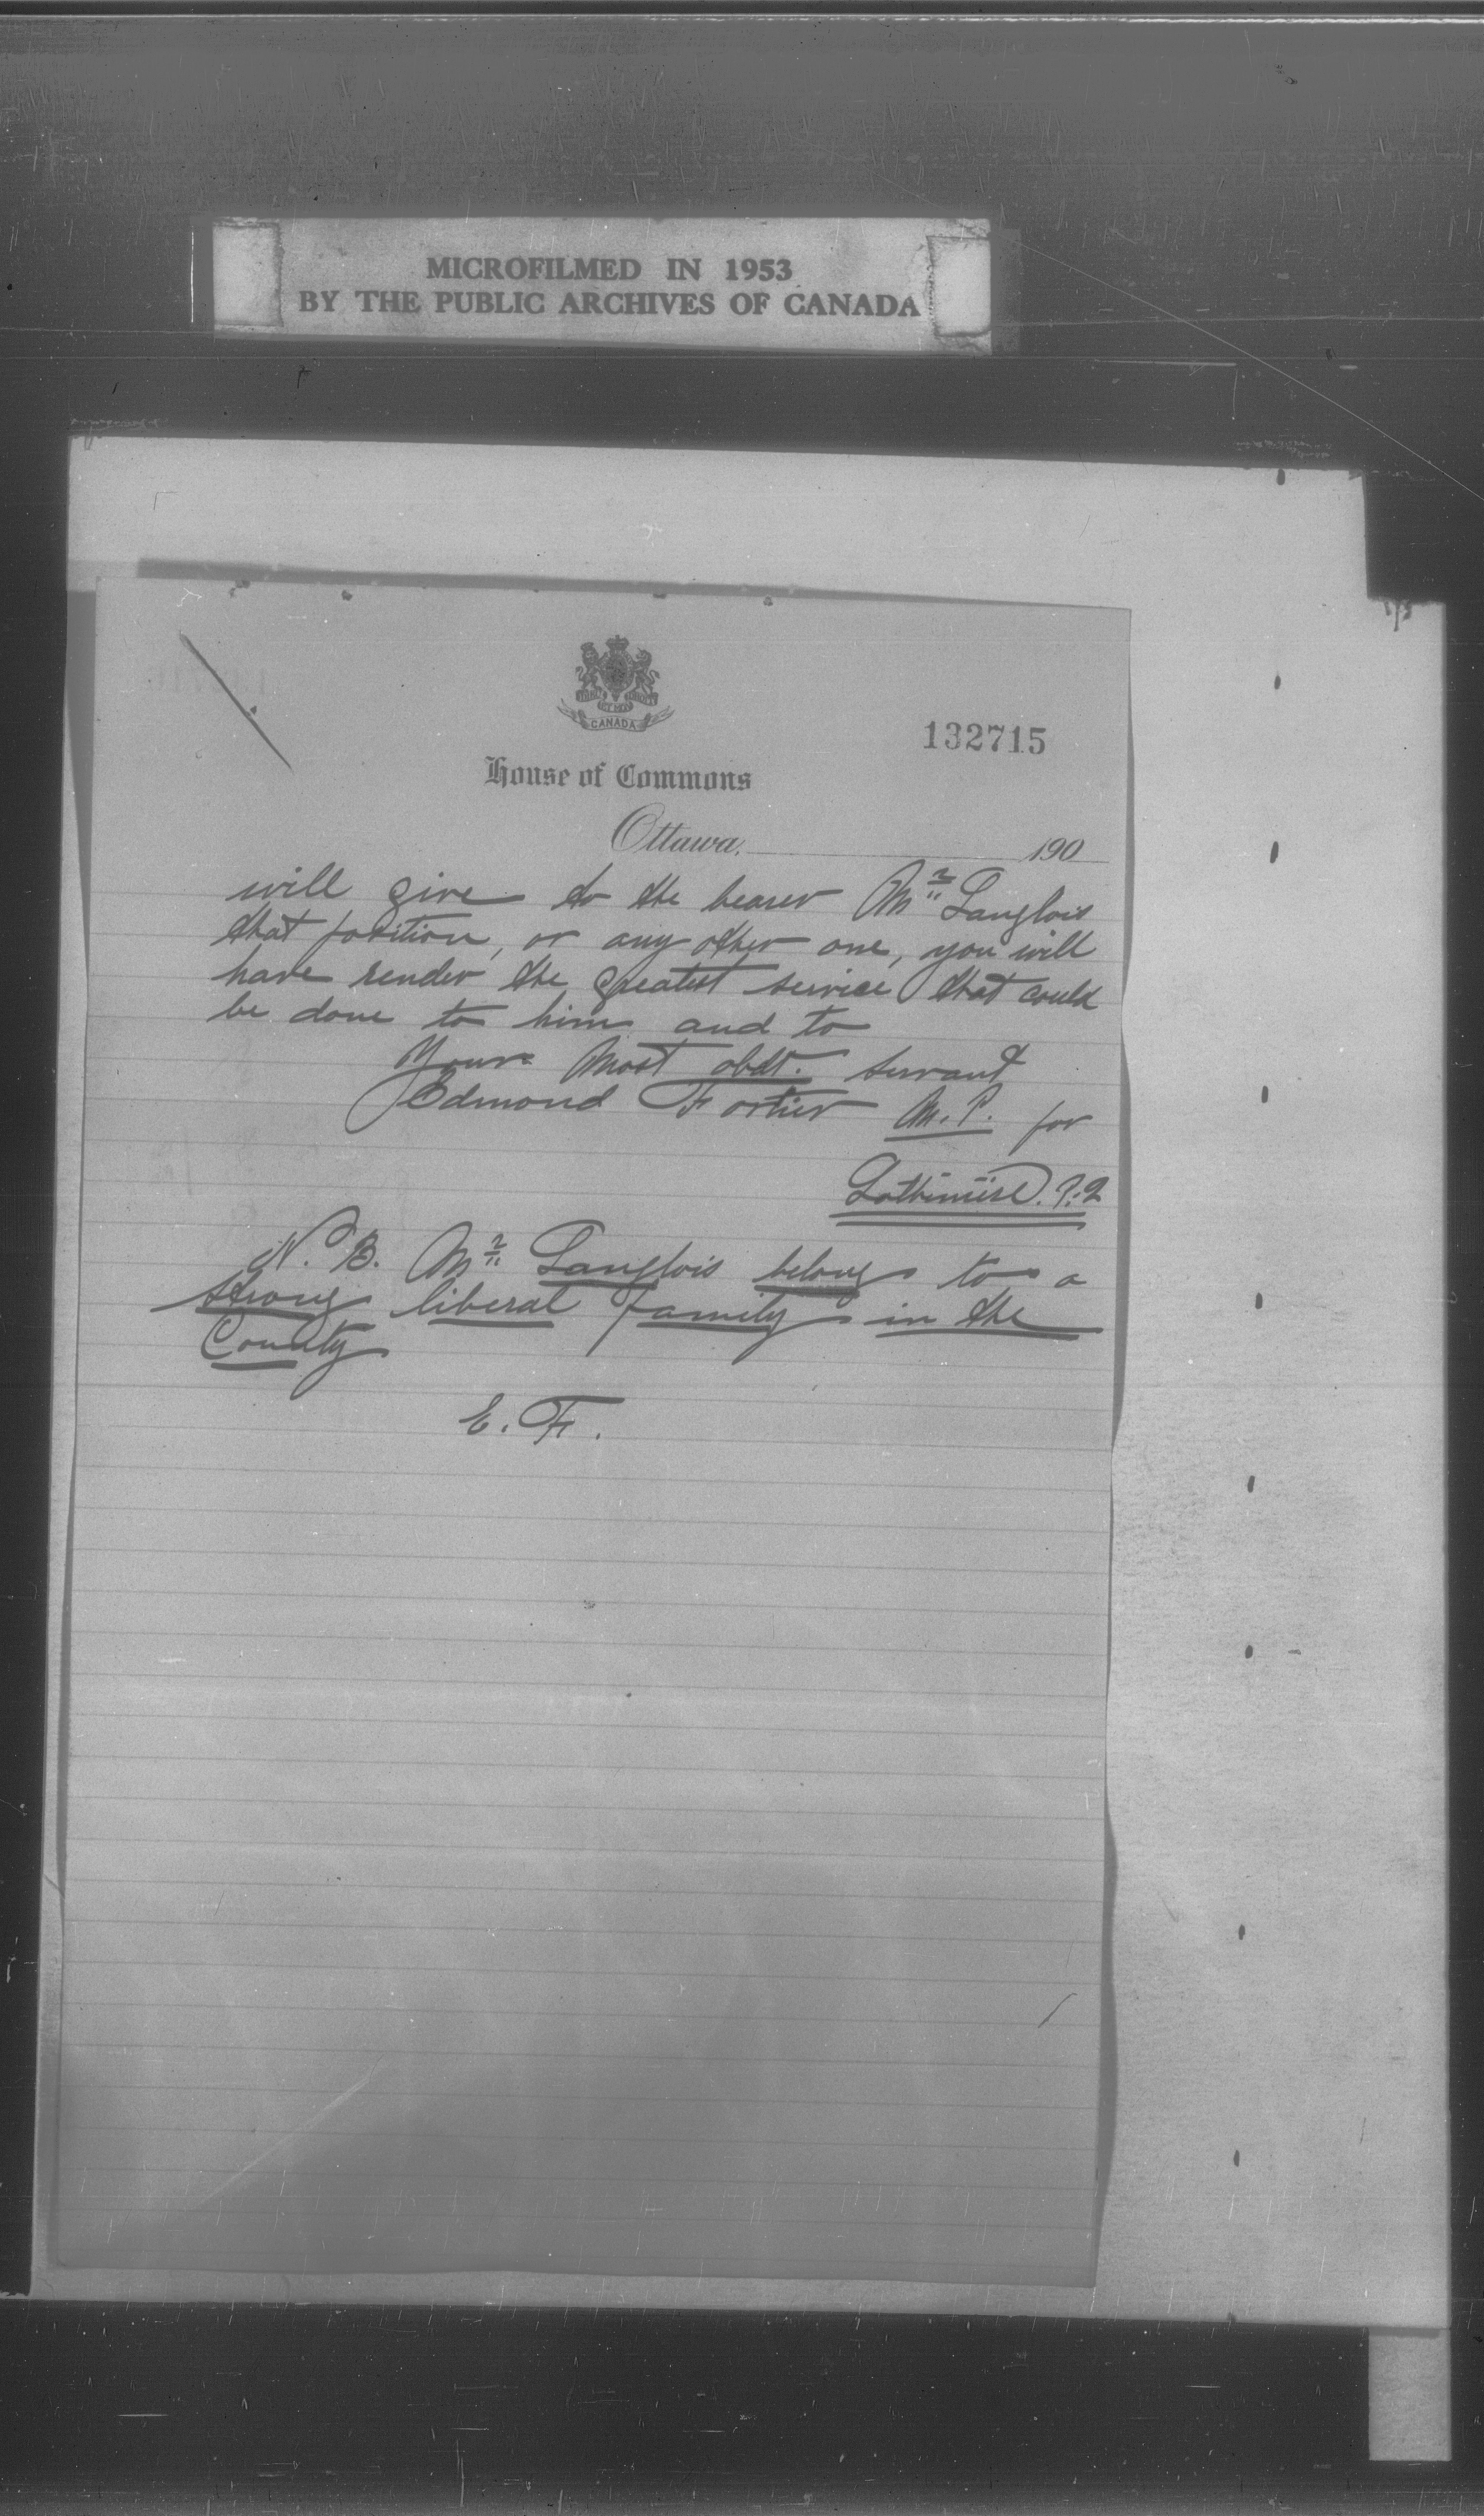 MICROFILMED IN 1953
BY THE PUBLIC ARCHIVES OF CANADA
CANADA
132715
House of Commons
Ottawa, 190
will give to the bearer Mr Langlois
that position, or any other one, you will
have render the greatest service that could
be done to him and to
Your most obdt. servant
Edmond Fortier M.P. for
Lotbinière. P.Q
N.B. Mr Langlois belong to a
strong liberal family in the
County
E. F.